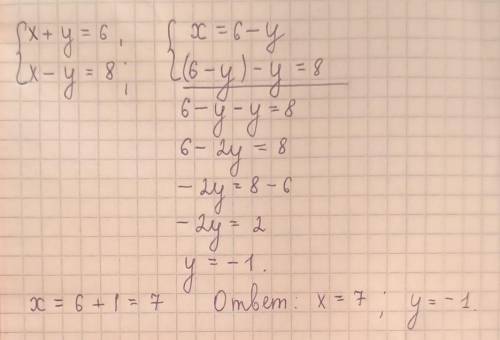 x + y = 6, x = 6 - y
x - y = 8; (6 - y) - y = 8
6 - y - y = 8
6 - 2y = 8
- 2y = 8 - 6
- 2y = 2
y = - 1.
x = 6 + 1 = 7 Ответ: x = 7; y = - 1.